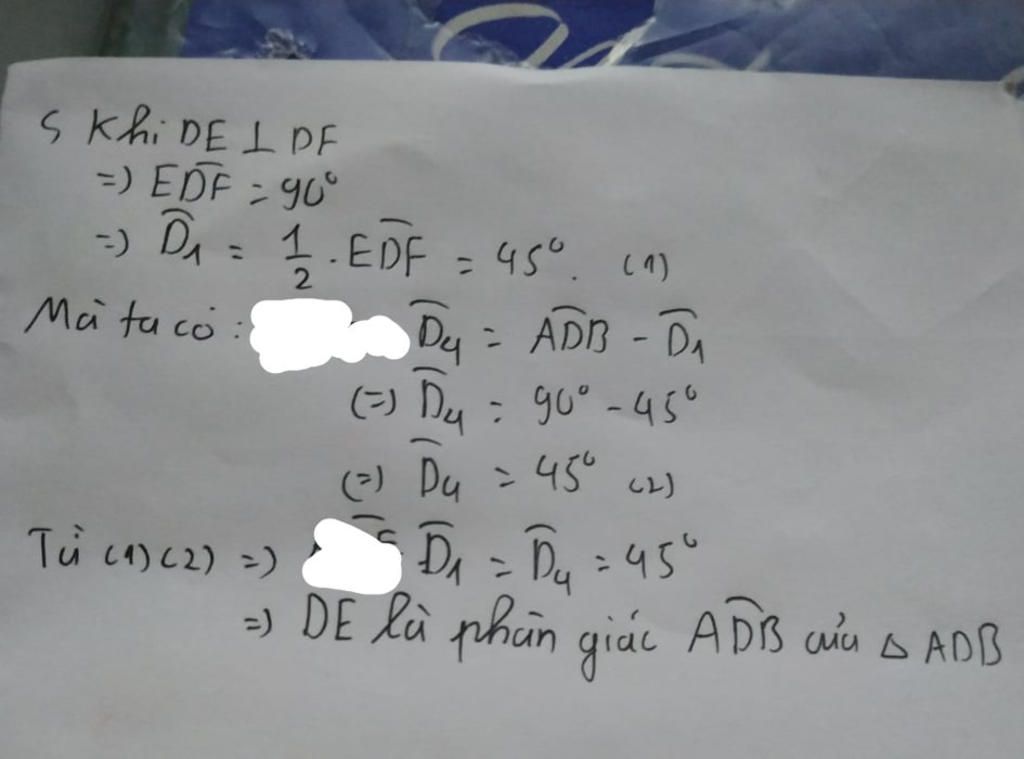 S Khi DE ⊥ DF
=) ED̂F = 90°
=) D̂1 = 1/2 . ED̂F = 45°. (1)
Mà ta có : D̂4 = AD̂B - D̂1
(=) D̂4 = 90° - 45°
(=) D̂4 = 45° (2)
Từ (1) (2) =) D̂1 = D̂4 = 45°
=) DE là phân giác AD̂B của △ ADB